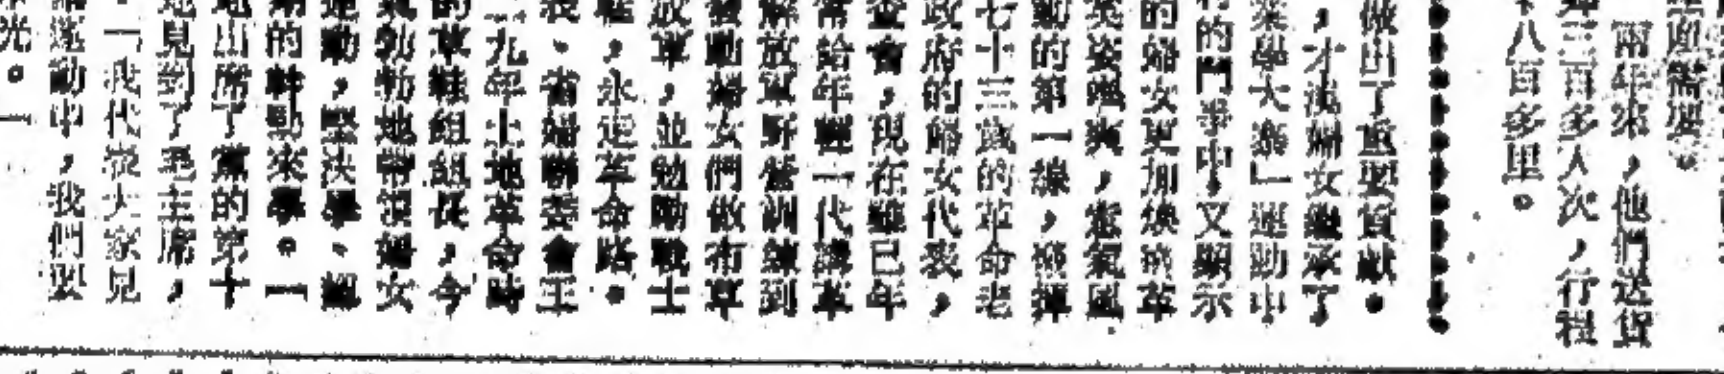 面需要。
兩年來，他們送貨
三百多人次，行程
八百多里。
做出了重要貢獻。
，才溪婦女繼承了
業學大寨」運動中
的鬥爭中，又顯示
的婦女更加煥發革
英姿颯爽，意氣風
動的第一線，發揮
七十三歲的革命老
政府的婦女代表，
查會，現在雖已年
常給年輕一代講革
解放軍野營訓練到
發動婦女們做布草
放軍，並勉勵戰士
，永走革命路。
表、省婦聯委會主
九年土地革命時
的草鞋組組長，今
勃勃地帶領婦女
運動，堅決學、
的幹勁來學。一
地出席了黨的第十
見到了毛主席，
「我代表大家見
運動中，我們要
光。一